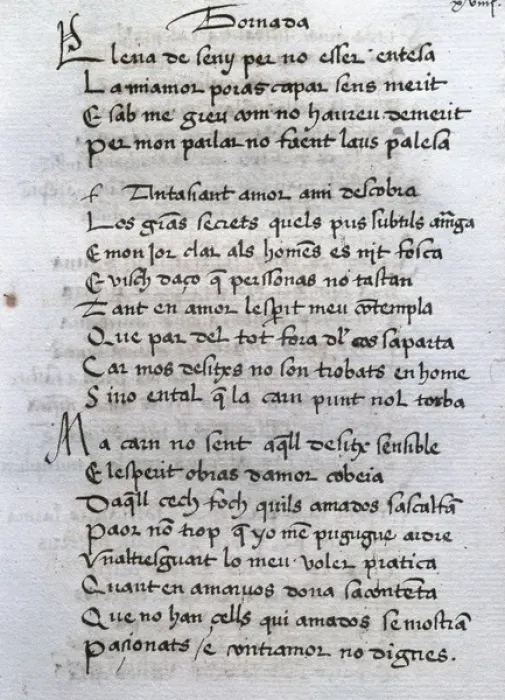 xviiij.
Tornada
Llena de seny per no esser entesa
La miamor poras capar sens merit
E sab me greu com no haureu demerit
Per mon parlar no fahent laus palesa
f Entahant amor ami descobra
Los grans secrets quels pus subtils amaga
E mon jor clar als homens es nit fosca
E visch daço q̄ perssonas no tastan
Tant en amor lesperit meu contempla
Que par del tot fora dl' cos saparta
Car mos desitxs no son trobats en home
Sino ental q̄ la carn punt nol torba
Ma carn no sent aq̄ll desitx sensible
E lesperit obras damor cobeia
Daq̄ll cech foch quils amados sascalfā
Paor nō trop q̄ yo mē pugugue ardre
Vnaltresguart lo meu voler pratica
Quant en amaruos dona sacontēta
Que no han cells qui amados se mostrā
Passionats / e contramor no dignes.